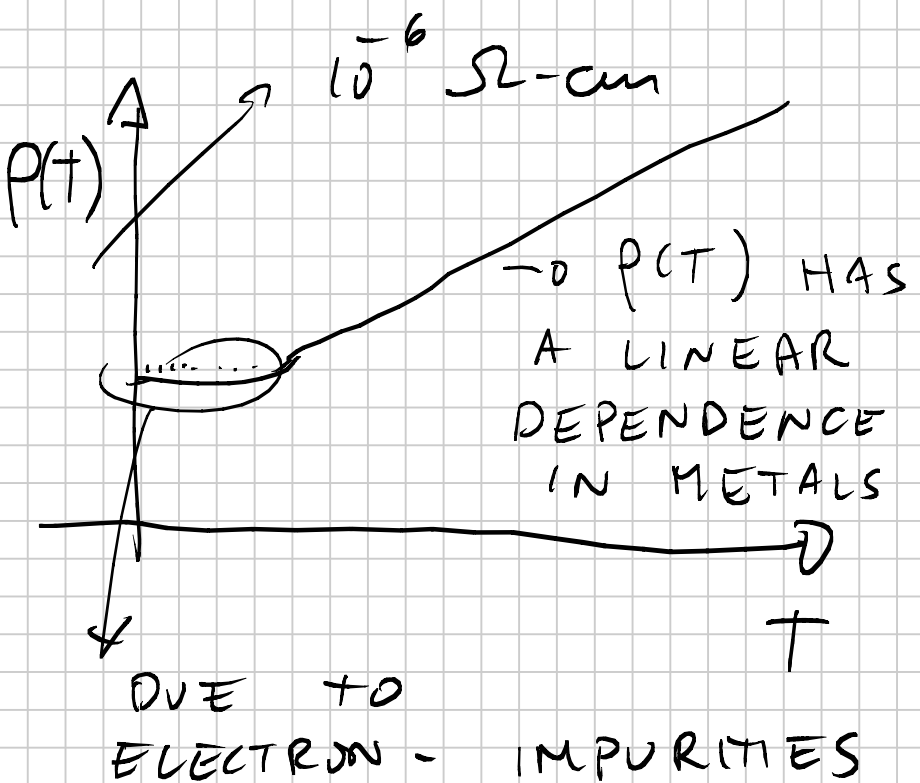 10⁻⁶ Ω-cm
ρ(T)
→ ρ(T) HAS
A LINEAR
DEPENDENCE
IN METALS
T
DUE TO
ELECTRON - IMPURITIES